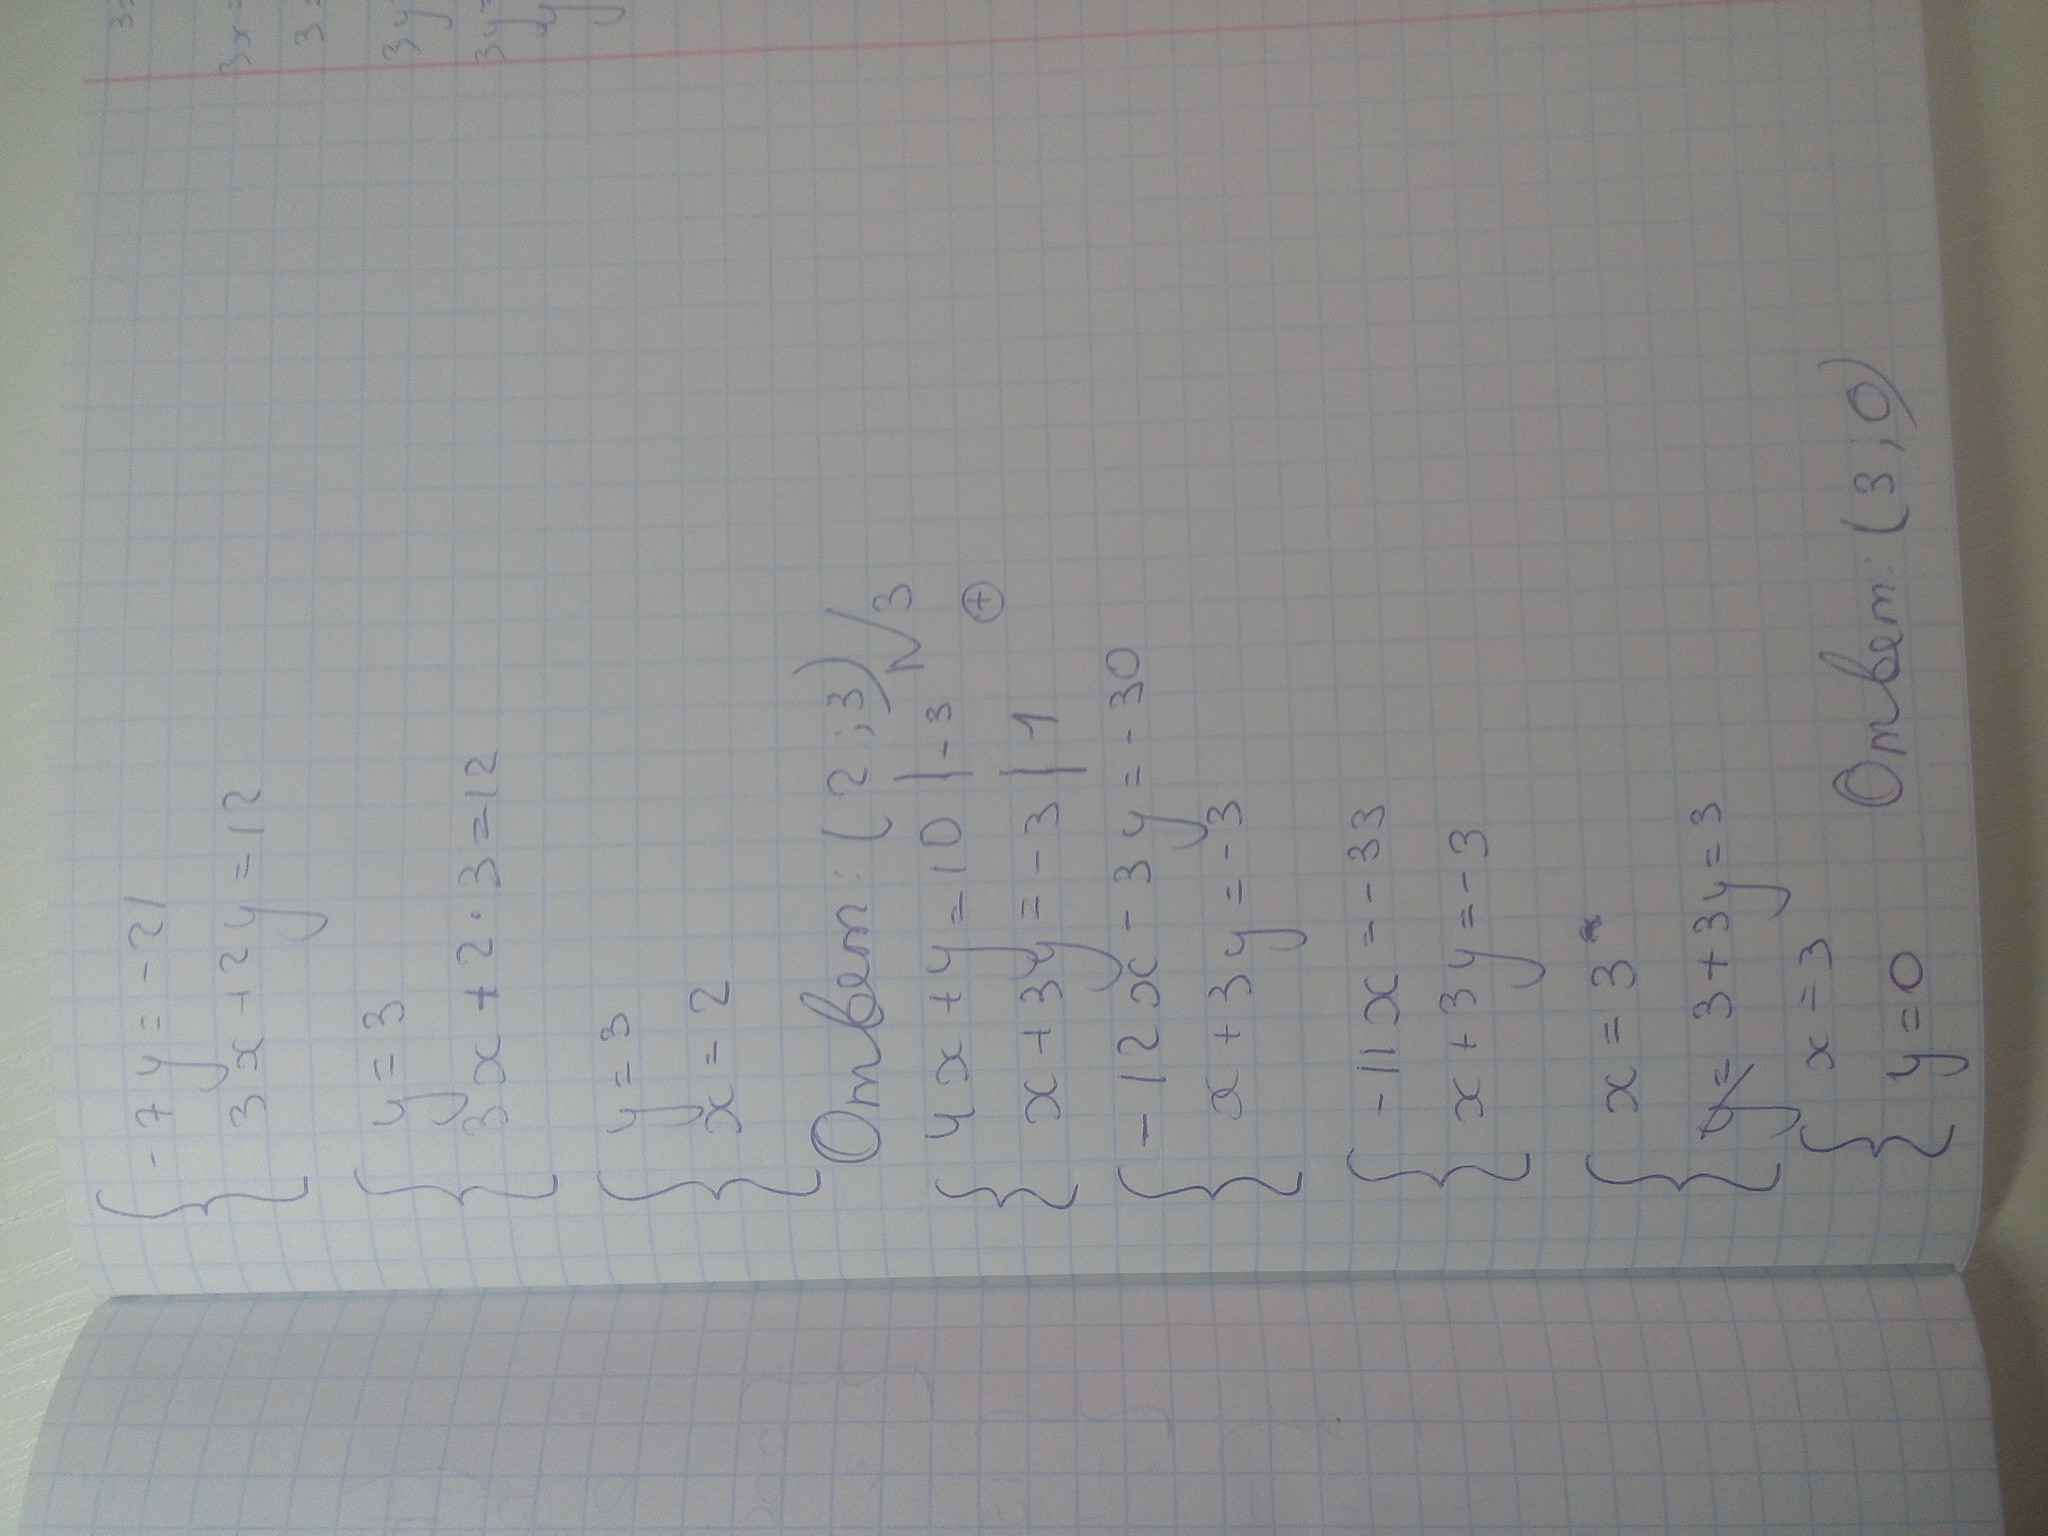 -7y=-21
3x+2y=12
y=3
3x+2·3=12
y=3
x=2
Ответ: (2;3)
√3
4x+y=10 | -3
x+3y=-3 | 1
-12x-3y=-30
x+3y=-3
-11x=-33
x+3y=-3
x=3
y= 3+3y=3
x=3
y=0
Ответ: (3;0)